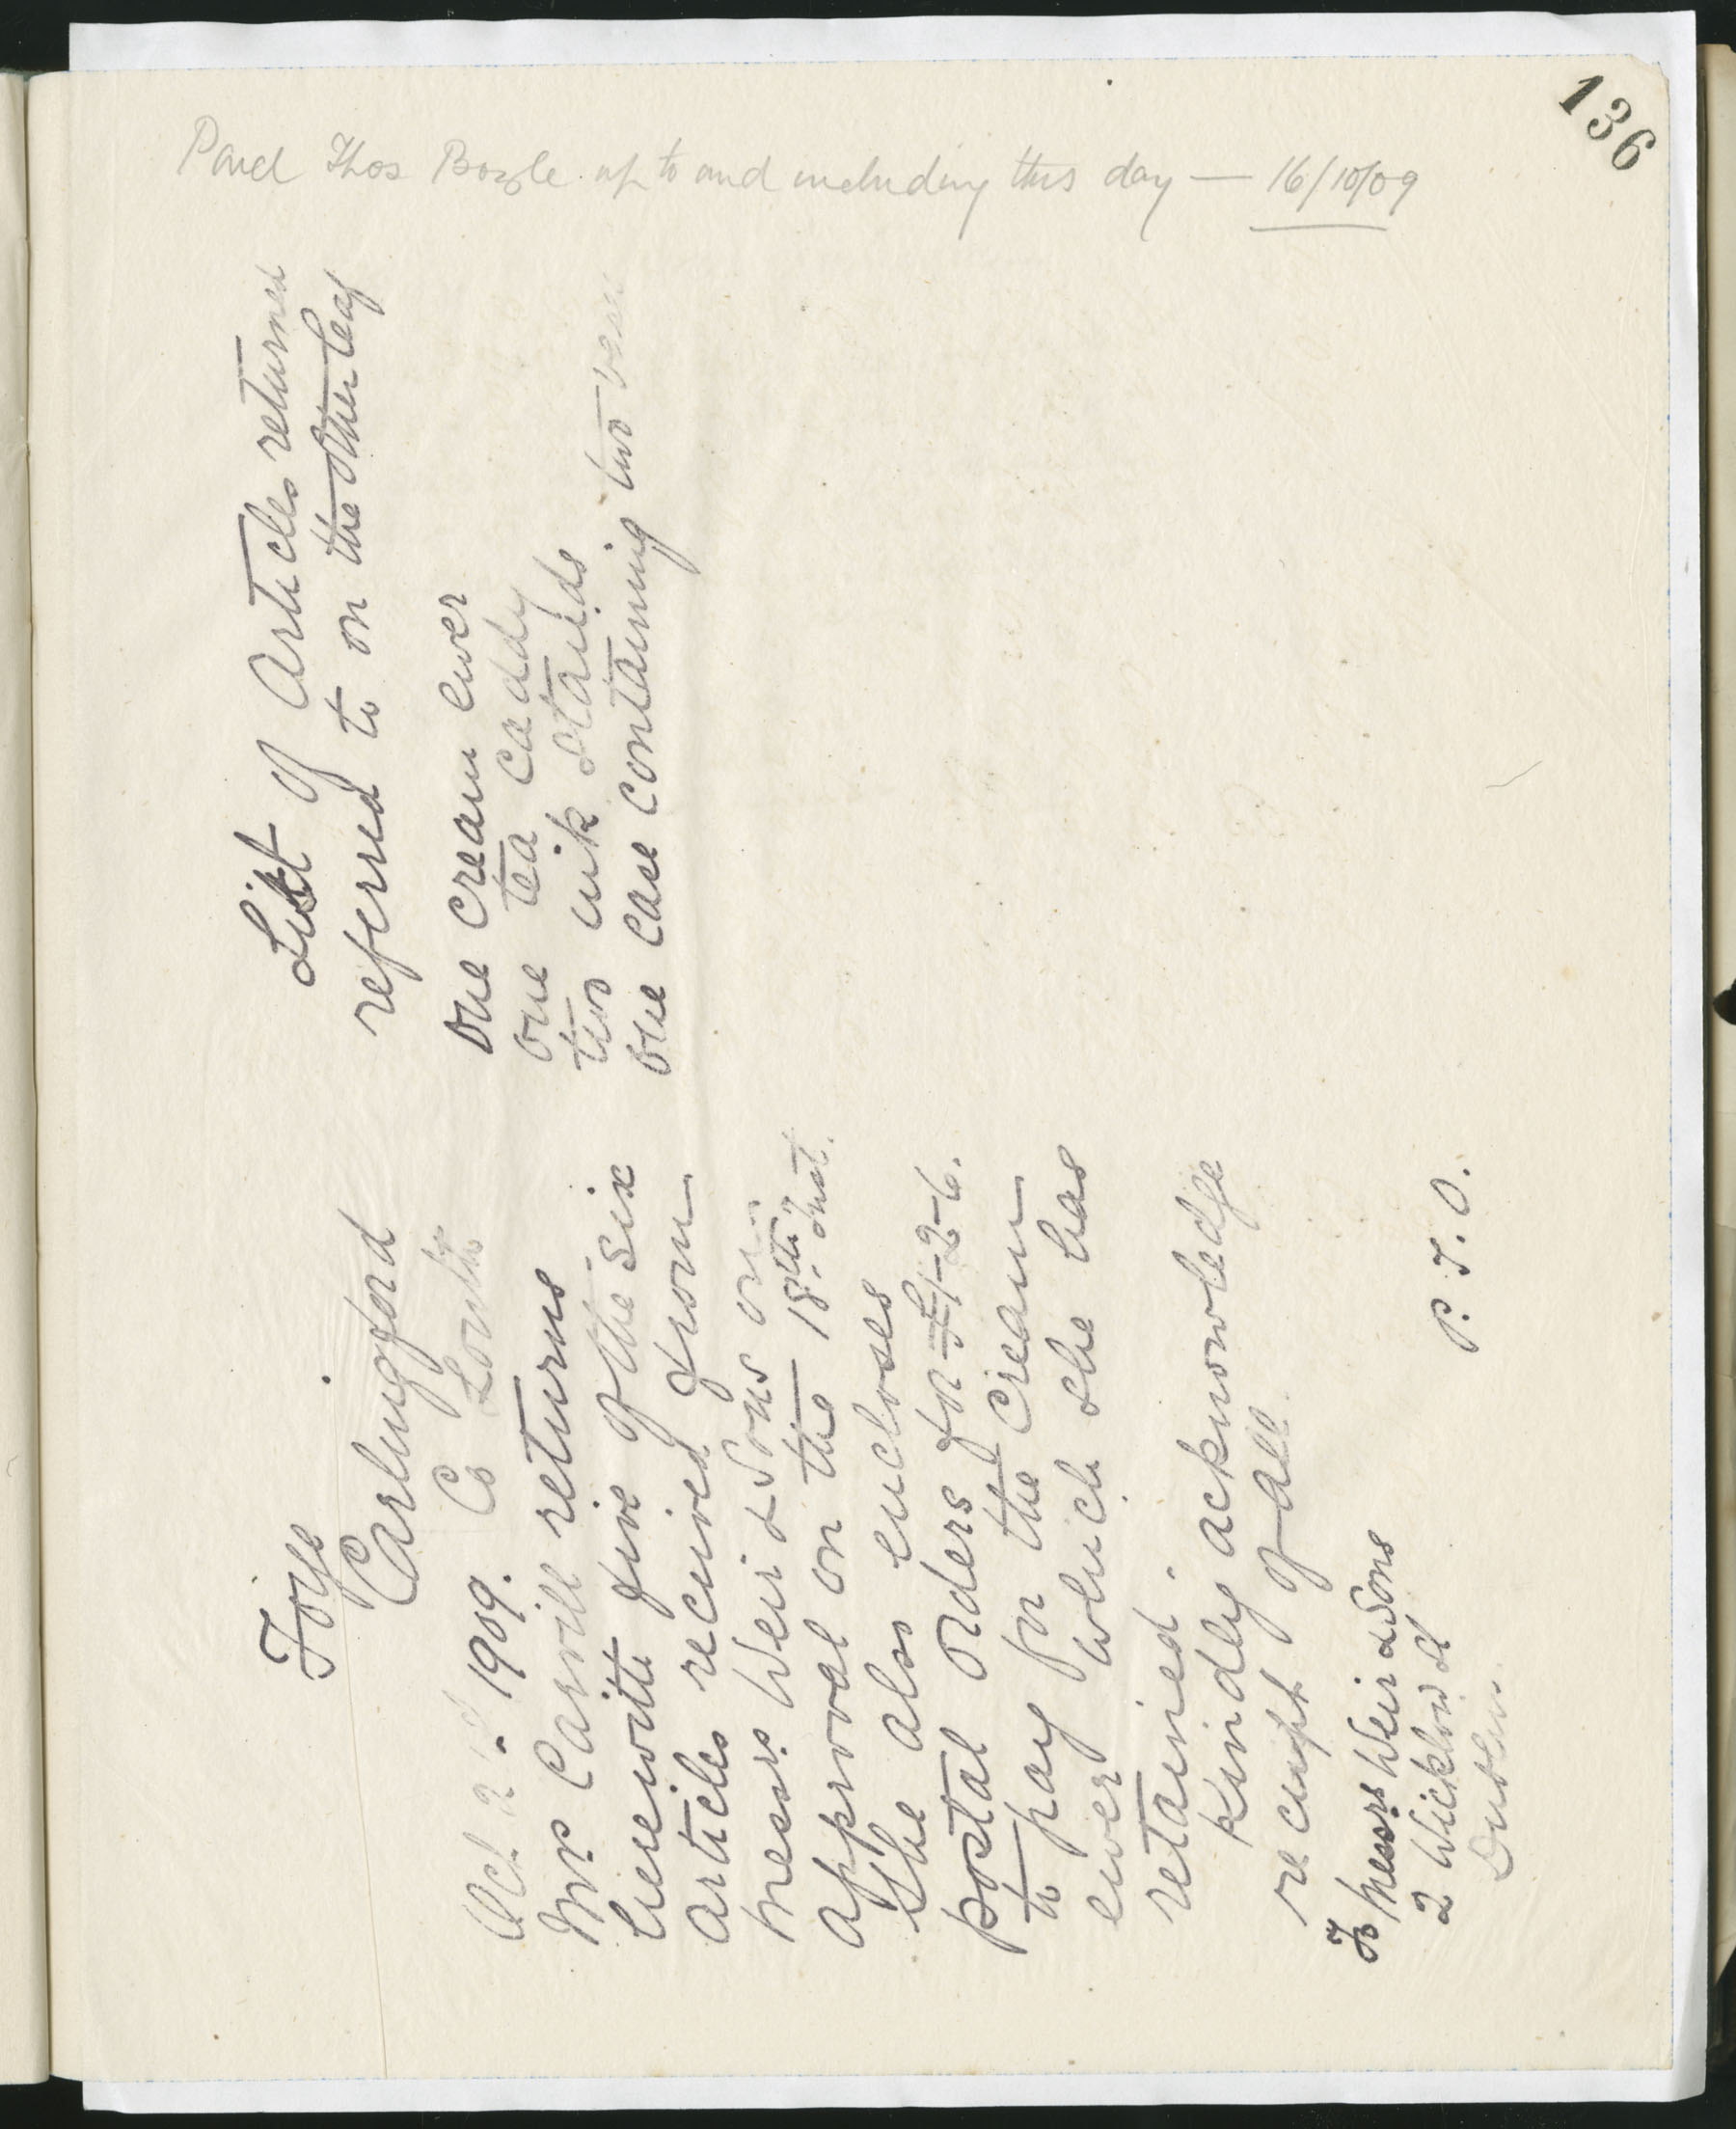 136
Paid Thos Boyle up to and including this day — 16/10/09
Foye
Carlingford
Co Louth
Oct 1909.
Mrs Carvill returns
herewith five of the six
articles received from
Messrs Weir & Sons on
approval on the 18th Inst.
She also encloses
postal orders for £1-2-6.
to pay for the cream
ewer which she has
retained.
Kindly acknowledge
receipt of all.
To Messrs Weir & Sons
2 Wicklow St
Dublin.
P. T. O.
List of Articles returned
referred to on the other leaf
One cream ewer
one tea caddy
two ink stands
one case containing two